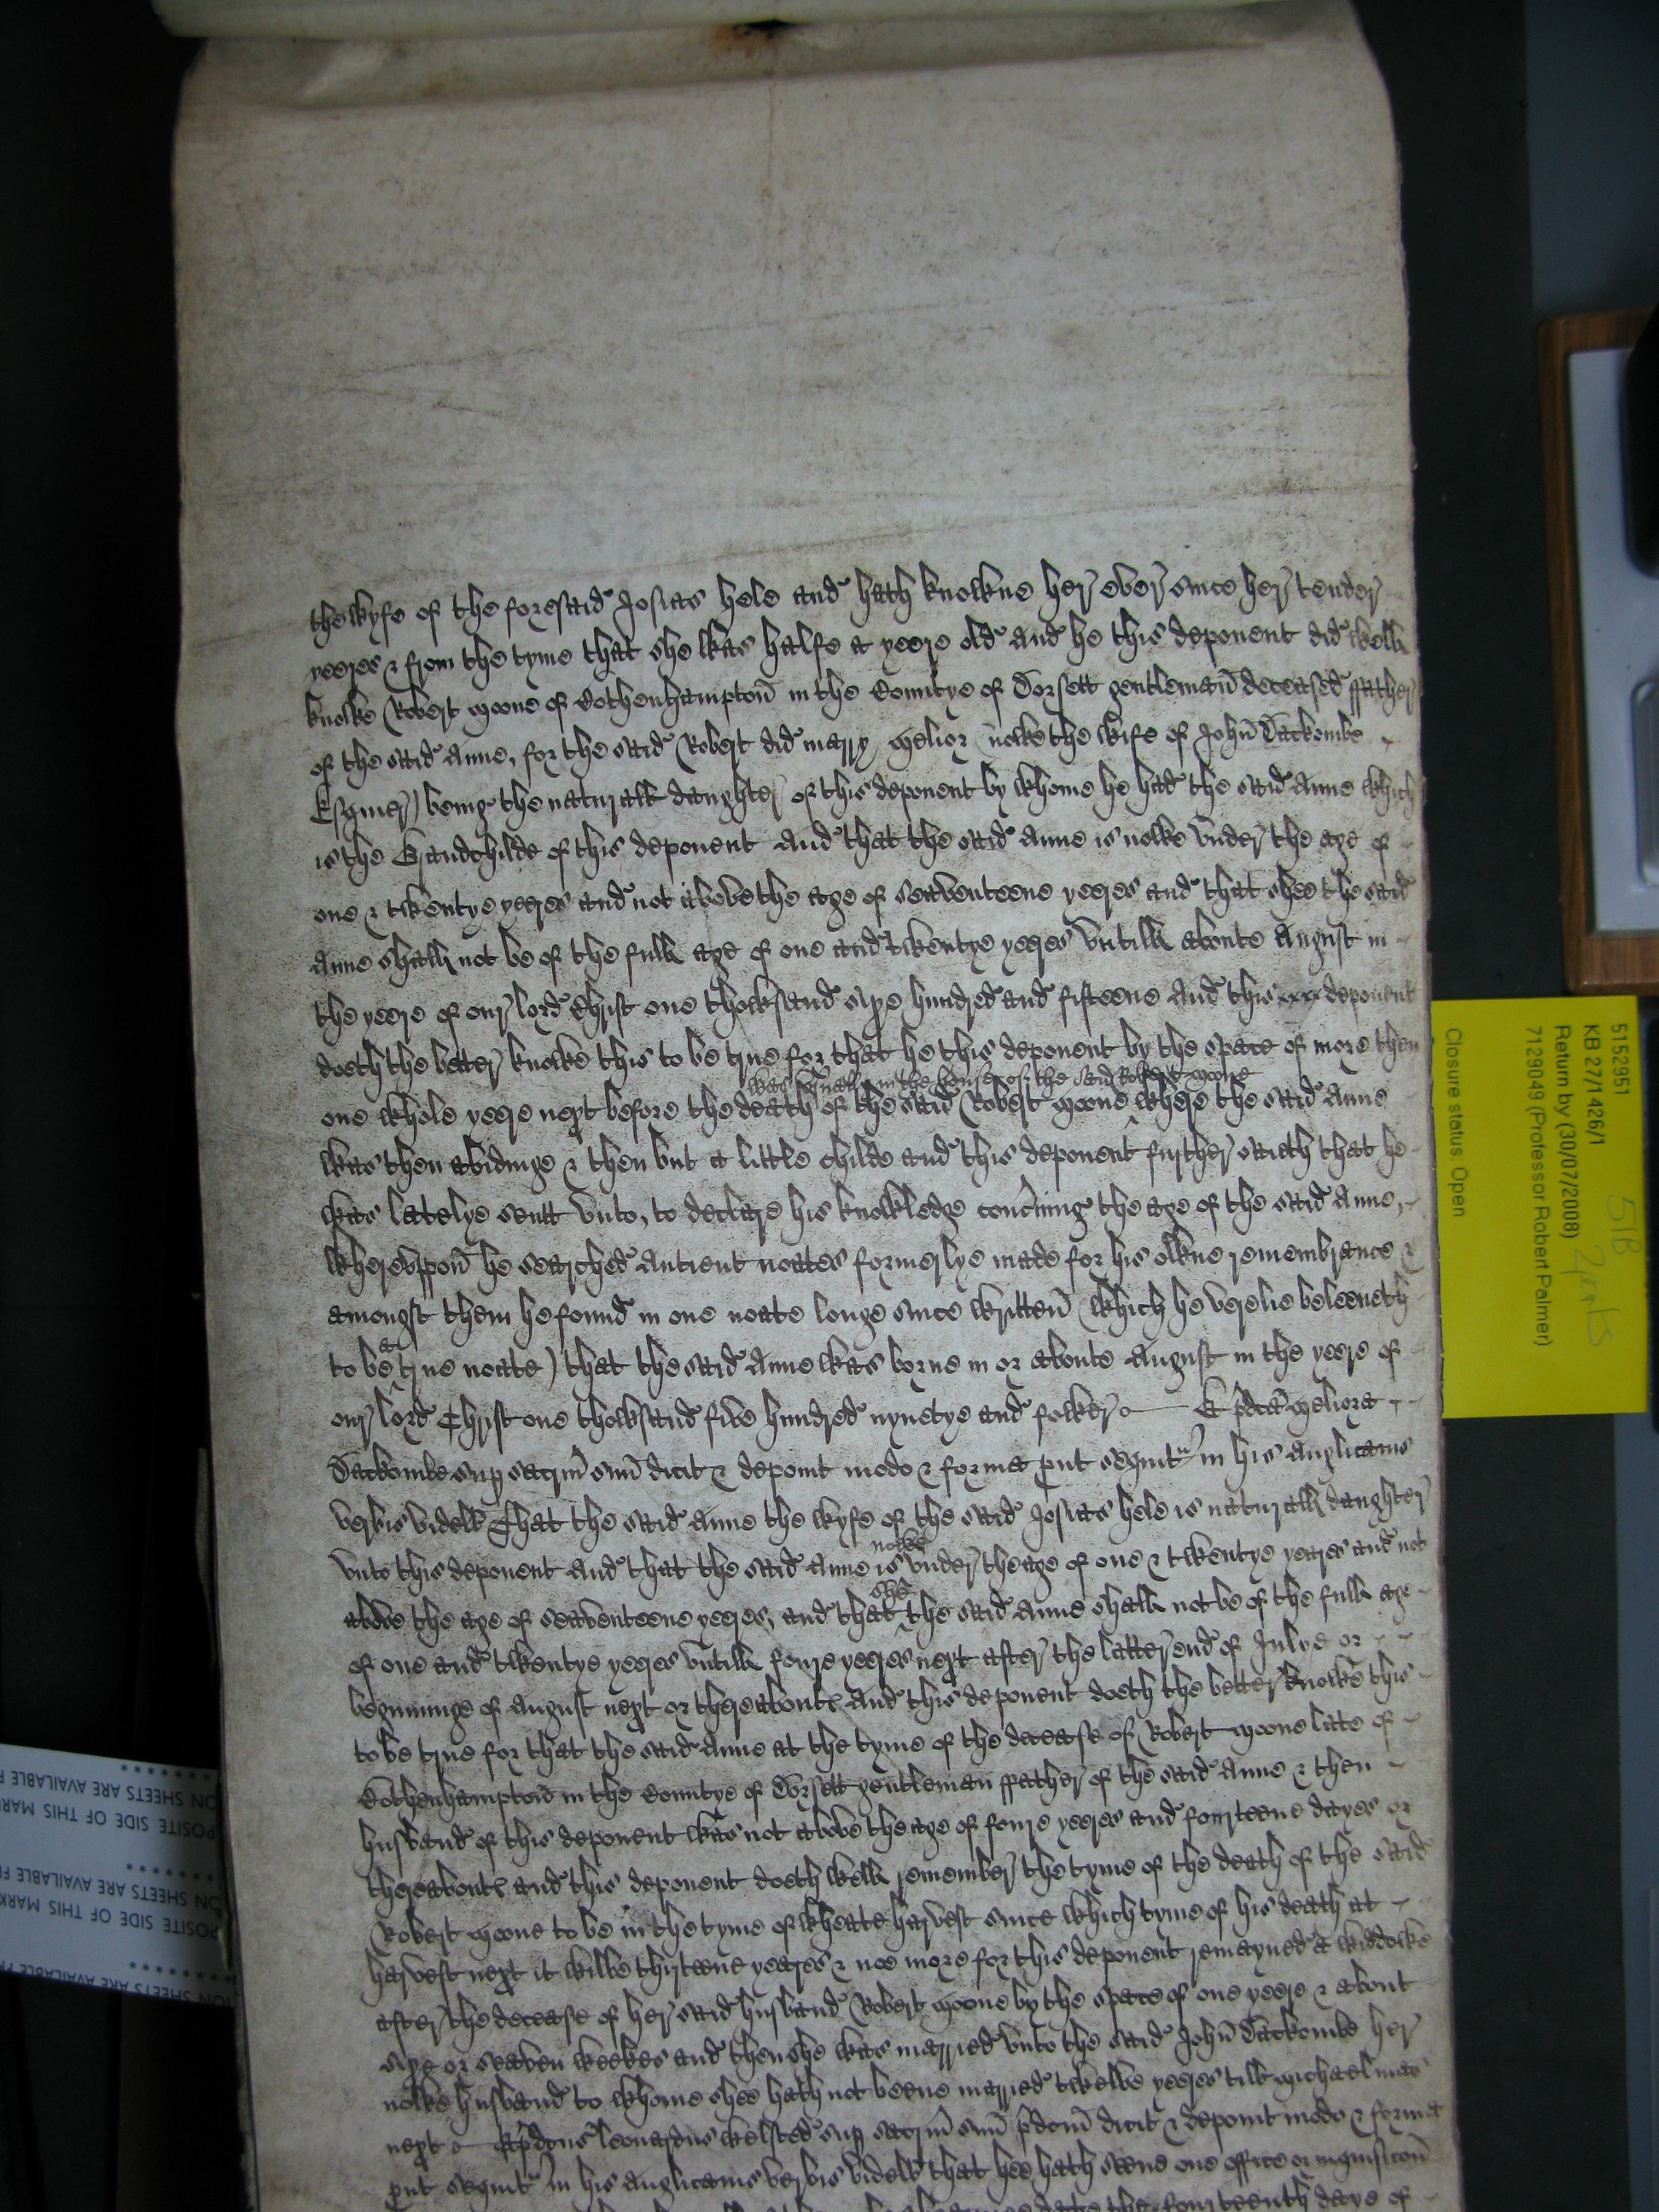 the wyfe of the foresaid Josias hele and hath knowne her ever since her tender
yeeres & from the tyme that she was halfe a yeere old And he this deponent did well
knowe Robert Moone of Bothenhampton in the Countye of Dorsett gentleman deceased ffather
of the said Anne, for the said Robert did marry Melior (nowe the wife of John Dackombe
Esquier) being the naturall daughter of this deponent by whome he had the said Anne which
is the Grandchilde of this deponent And that the said Anne is nowe under the age of
one & twentye yeeres and not above the age of seaventeene yeeres and that shee the said
Anne shall not be of the full age of one and twentye yeeres untill aboute August in
the yeere of our lord Christ one thowsand sixe hundred and fifteene And this deponent
doeth the better knowe this to be true for that he this deponent by the space of more then
was in the house of the said Robert Moone
one whole yeere next before the death of the said Robert Moone where the said Anne
was then abidinge & then but a little childe and this deponent further saieth that he
was latelye sentt unto, to declare his knowledge concrning the age of the said Anne,
whereuppon he searched Antient noates formerlye made for his owne remembrance &
amongst them he found in one noate longe since written (which he verelie beleeveth
to be a true noate) that the said Anne was borne in or aboute August in the yeere of
our lord Christ one thowsand five hundred nynetye and fower Et pdca Meliora
Dackombe sup sacrm suu dicit & deponit modo & forma put sequit in his Anglicanis
verbis videlt That the said Anne the wyfe of the said Josias hele is naturall daughter
unto this deponent And that the said Anne is nowe under the age of one & twentye yeares and not
above the age of seaventeene yeeres, and that she the said Anne shall not be of the full age
of one and twentye yeeres untill foure yeeres next after the latter end of Julye or
beginninge of August next or thereabouts And this deponent doeth the better knowe this
to be true for that the said Anne at the tyme of the decease of Robert Moone late of
Bothenhampton in the Countye of Dorsett gentleman ffather of the said Anne & then
husband of this deponent was not above the age of foure yeeres and fourteene dayes or
thereabouts and this deponent doeth well remember the tyme of the death of the said
Robert Moone to be in the tyme of wheate harvest since which tyme of his death at
harvest next it wilbe thirteene yeares & noe more for this deponent remayned a widdowe
after the decease of her said husband Robert Moone by the space of one yeere & about
sixe or seaven weekes and then she was married unto the said John Dackombe her
nowe husband to whome shee hath not beene married twelve yeeres till Michaelmas
next Ac pdcus Leonardus Welsted sup sacrm suu pdcm dicit & deponit modo & forma
put sequit in his Anglicanis verbis videlt that hee hath seene one office or inquisicon
the fourteenth daye of
5152951
KB 27/1426/1
Return by (30/07/2008)
7129049 (Professor Robert Palmer)
Closure status: Open
51B
2 parts
ON SHEETS ARE AVAILABLE
POSITE SIDE OF THIS MARK
ON SHEETS ARE AVAILABLE
POSITE SIDE OF THIS MARK
ION SHEETS ARE AVAILABLE